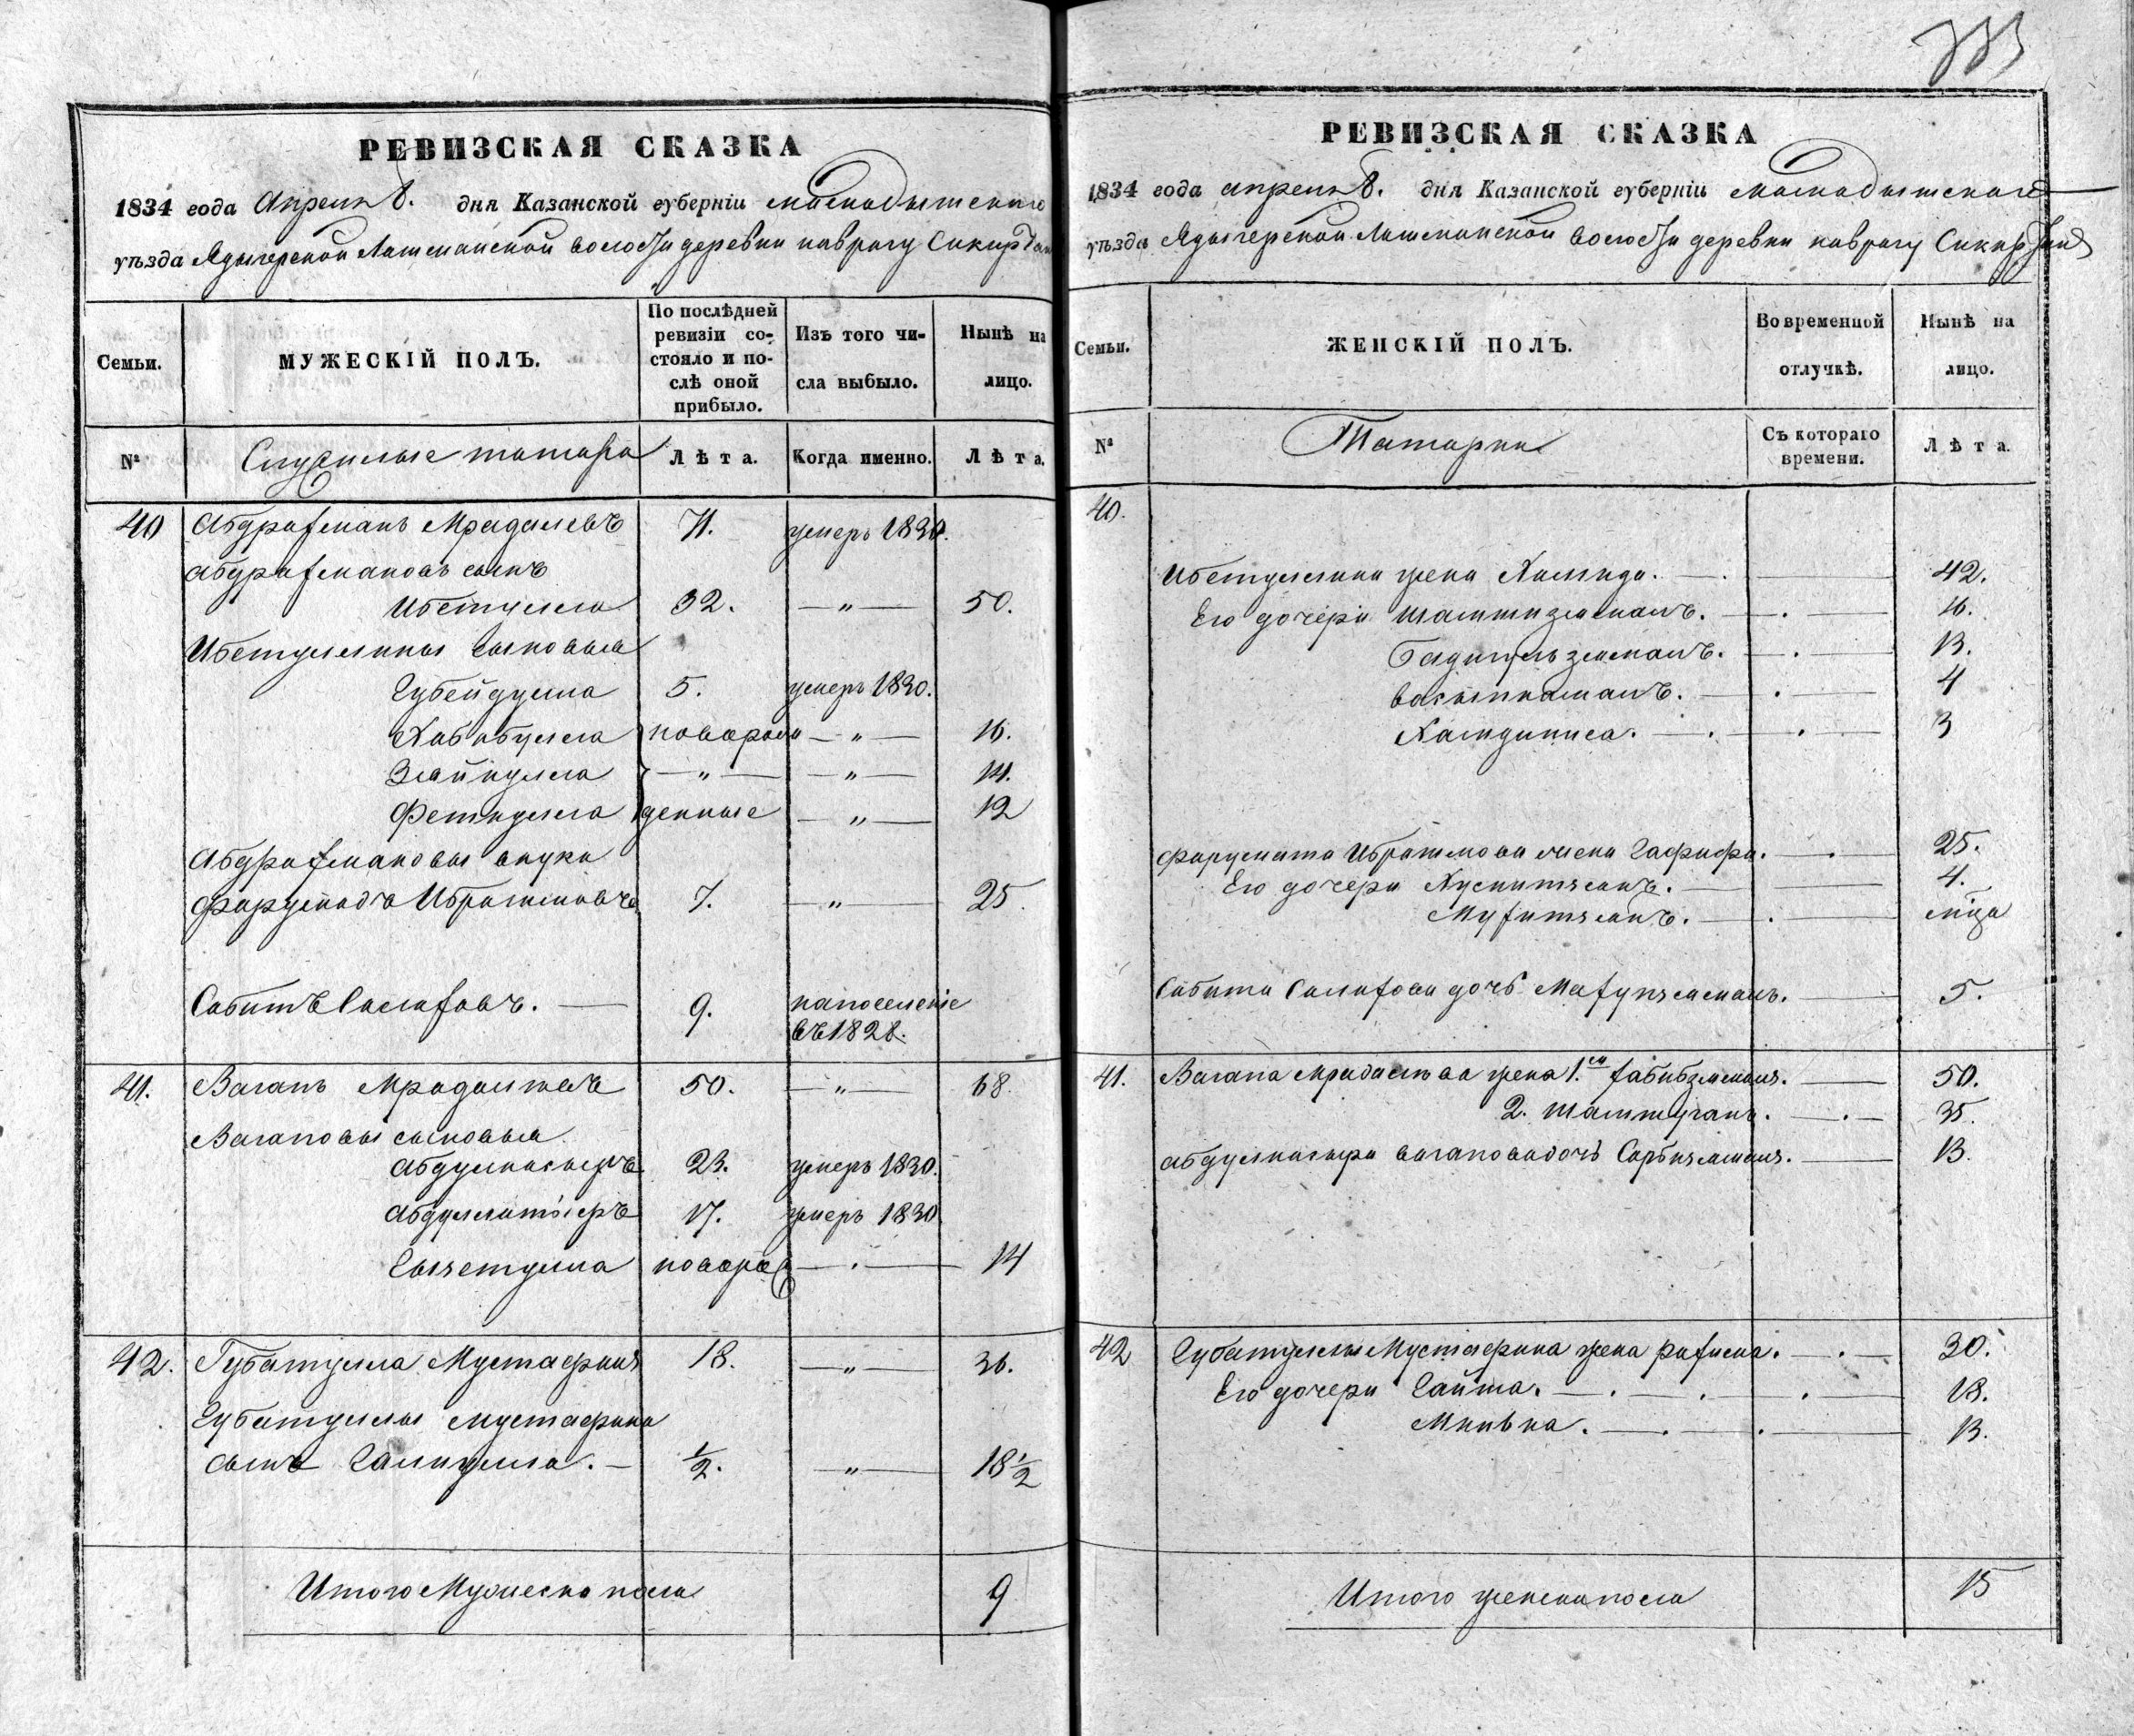 333
РЕВИЗСКАЯ СКАЗКА
1834 года Апреля 8. дня Казанской губерніи Мамадышскаго
уѣзда Ядыгерской Лашманской волости деревни по врагу Сикирдан
Семьи.
МУЖЕСКІЙ ПОЛЪ.
По послѣдней ревизіи состояло и послѣ оной прибыло.
Изъ того числа выбыло.
Нынѣ на лицо.
№
Служилые татара
Лѣта.
Когда именно.
Лѣта.
40 Абдрахманъ Мрадалевъ 71. умеръ 1830.
Абдрахмановъ сынъ
Ибетулла 32. — „ — 50.
Ибетуллины сыновья
Губейдулла 5. умеръ 1830.
Хабибулла новорож — „ — 16.
Зайнулла — „ — — „ — 14.
Фетхулла денные — „ — 12
Абдрахмановы внуки
Ибрагимовъ 7. — „ — 25.
Сабитъ Салиховъ. — 9. на поселеніе
въ 1828.
41. Вагапъ Мрадалиевъ 50. — „ — 68.
Вагаповы сыновья
23. умеръ 1830.
17. умеръ 1830
новорож — . — 14
42. Губатулла Мустафинъ 18. — „ — 36.
Губатуллы Мустафина
сынъ Галиулла. — ½. — „ — 18½
Итого Мужеска пола 9
РЕВИЗСКАЯ СКАЗКА
1834 года апреля 8. дня Казанской губерніи Мамадышскаго
уѣзда Ядыгерской Лашманской волости деревни по врагу Сикирдан
Семьи.
ЖЕНСКІЙ ПОЛЪ.
Во временной отлучкѣ.
Нынѣ на лицо.
№
Татарки
Съ котораго времени.
Лѣта.
40.
Ибетуллина жена Хамида. — 42.
Его дочери Шамсизямалъ. — 16.
Бадигульзямалъ. — 13.
4
3
Ибрагимова жена Гафифа. — 25.
Его дочери — 4.
— мца
Сабита Салихова дочь — 5.
41. Вагапа Мрадалева жена 1.ая Хабибзямал. — 50.
2. — 35.
вагапова дочь — 13.
42 Губатуллы Мустафина жена Рахима. — 30.
Его дочери Гайша. — 18.
— 13.
Итого женска пола 15